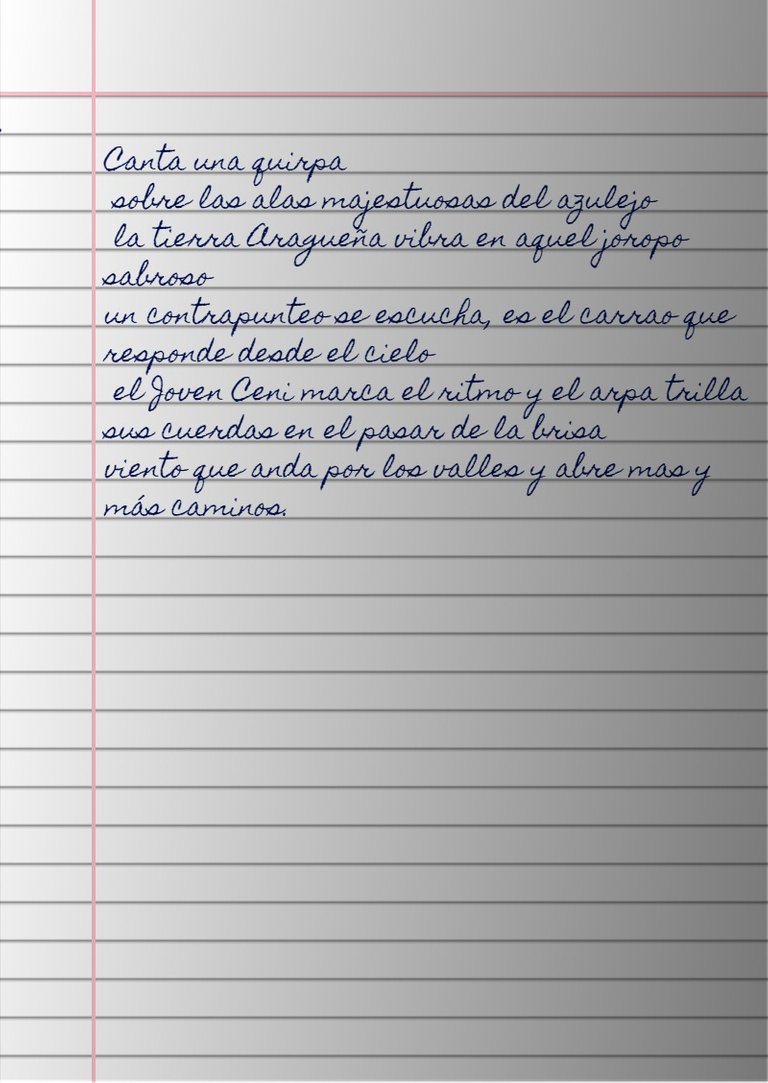 Canta una quirpa
sobre las alas majestuosas del azulejo
la tierra Aragueña vibra en aquel joropo
sabroso
un contrapunteo se escucha, es el carrao que
responde desde el cielo
el Joven Ceni marca el ritmo y el arpa trilla
sus cuerdas en el pasar de la brisa
viento que anda por los valles y abre mas y
más caminos.